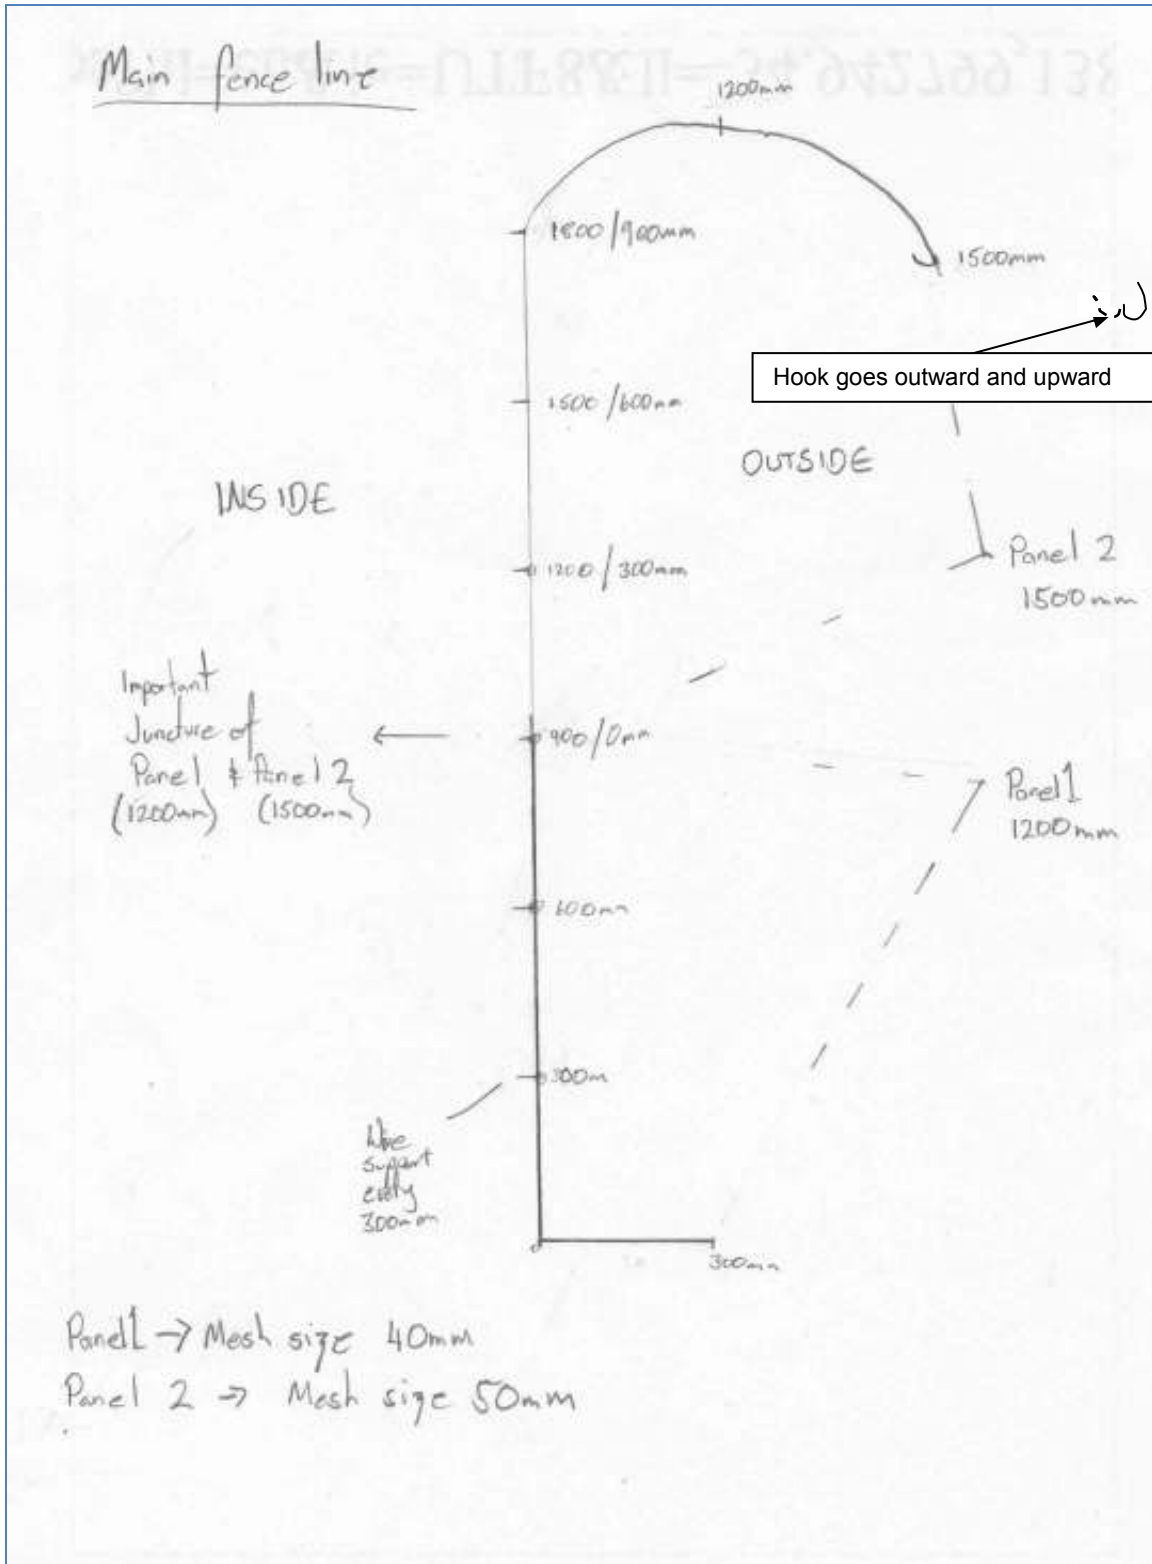 Main fence line
1200mm
1800/900mm
1500mm
Hook goes outward and upward
1500/600mm
OUTSIDE
INSIDE
1200/300mm
Panel 2
1500mm
Important
Juncture of
Panel 1 & Panel 2
(1200mm) (1500mm)
900/0mm
Panel 1
1200mm
600mm
300m
Wire
support
every
300mm
300mm
Panel 1 → Mesh size 40mm
Panel 2 → Mesh size 50mm